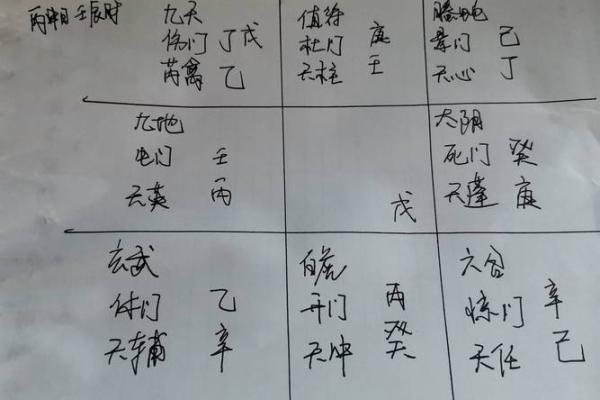 丙申日壬辰时
九天
伤门 丁戊
芮禽 乙
值符
杜门 庚
天柱 壬
螣蛇
景门 己
天心 丁
九地
生门 壬
天英 丙
戊
太阴
死门 癸
天蓬 庚
玄武
休门 乙
天辅 辛
白虎
开门 丙
天冲 癸
六合
惊门 辛
天任 己